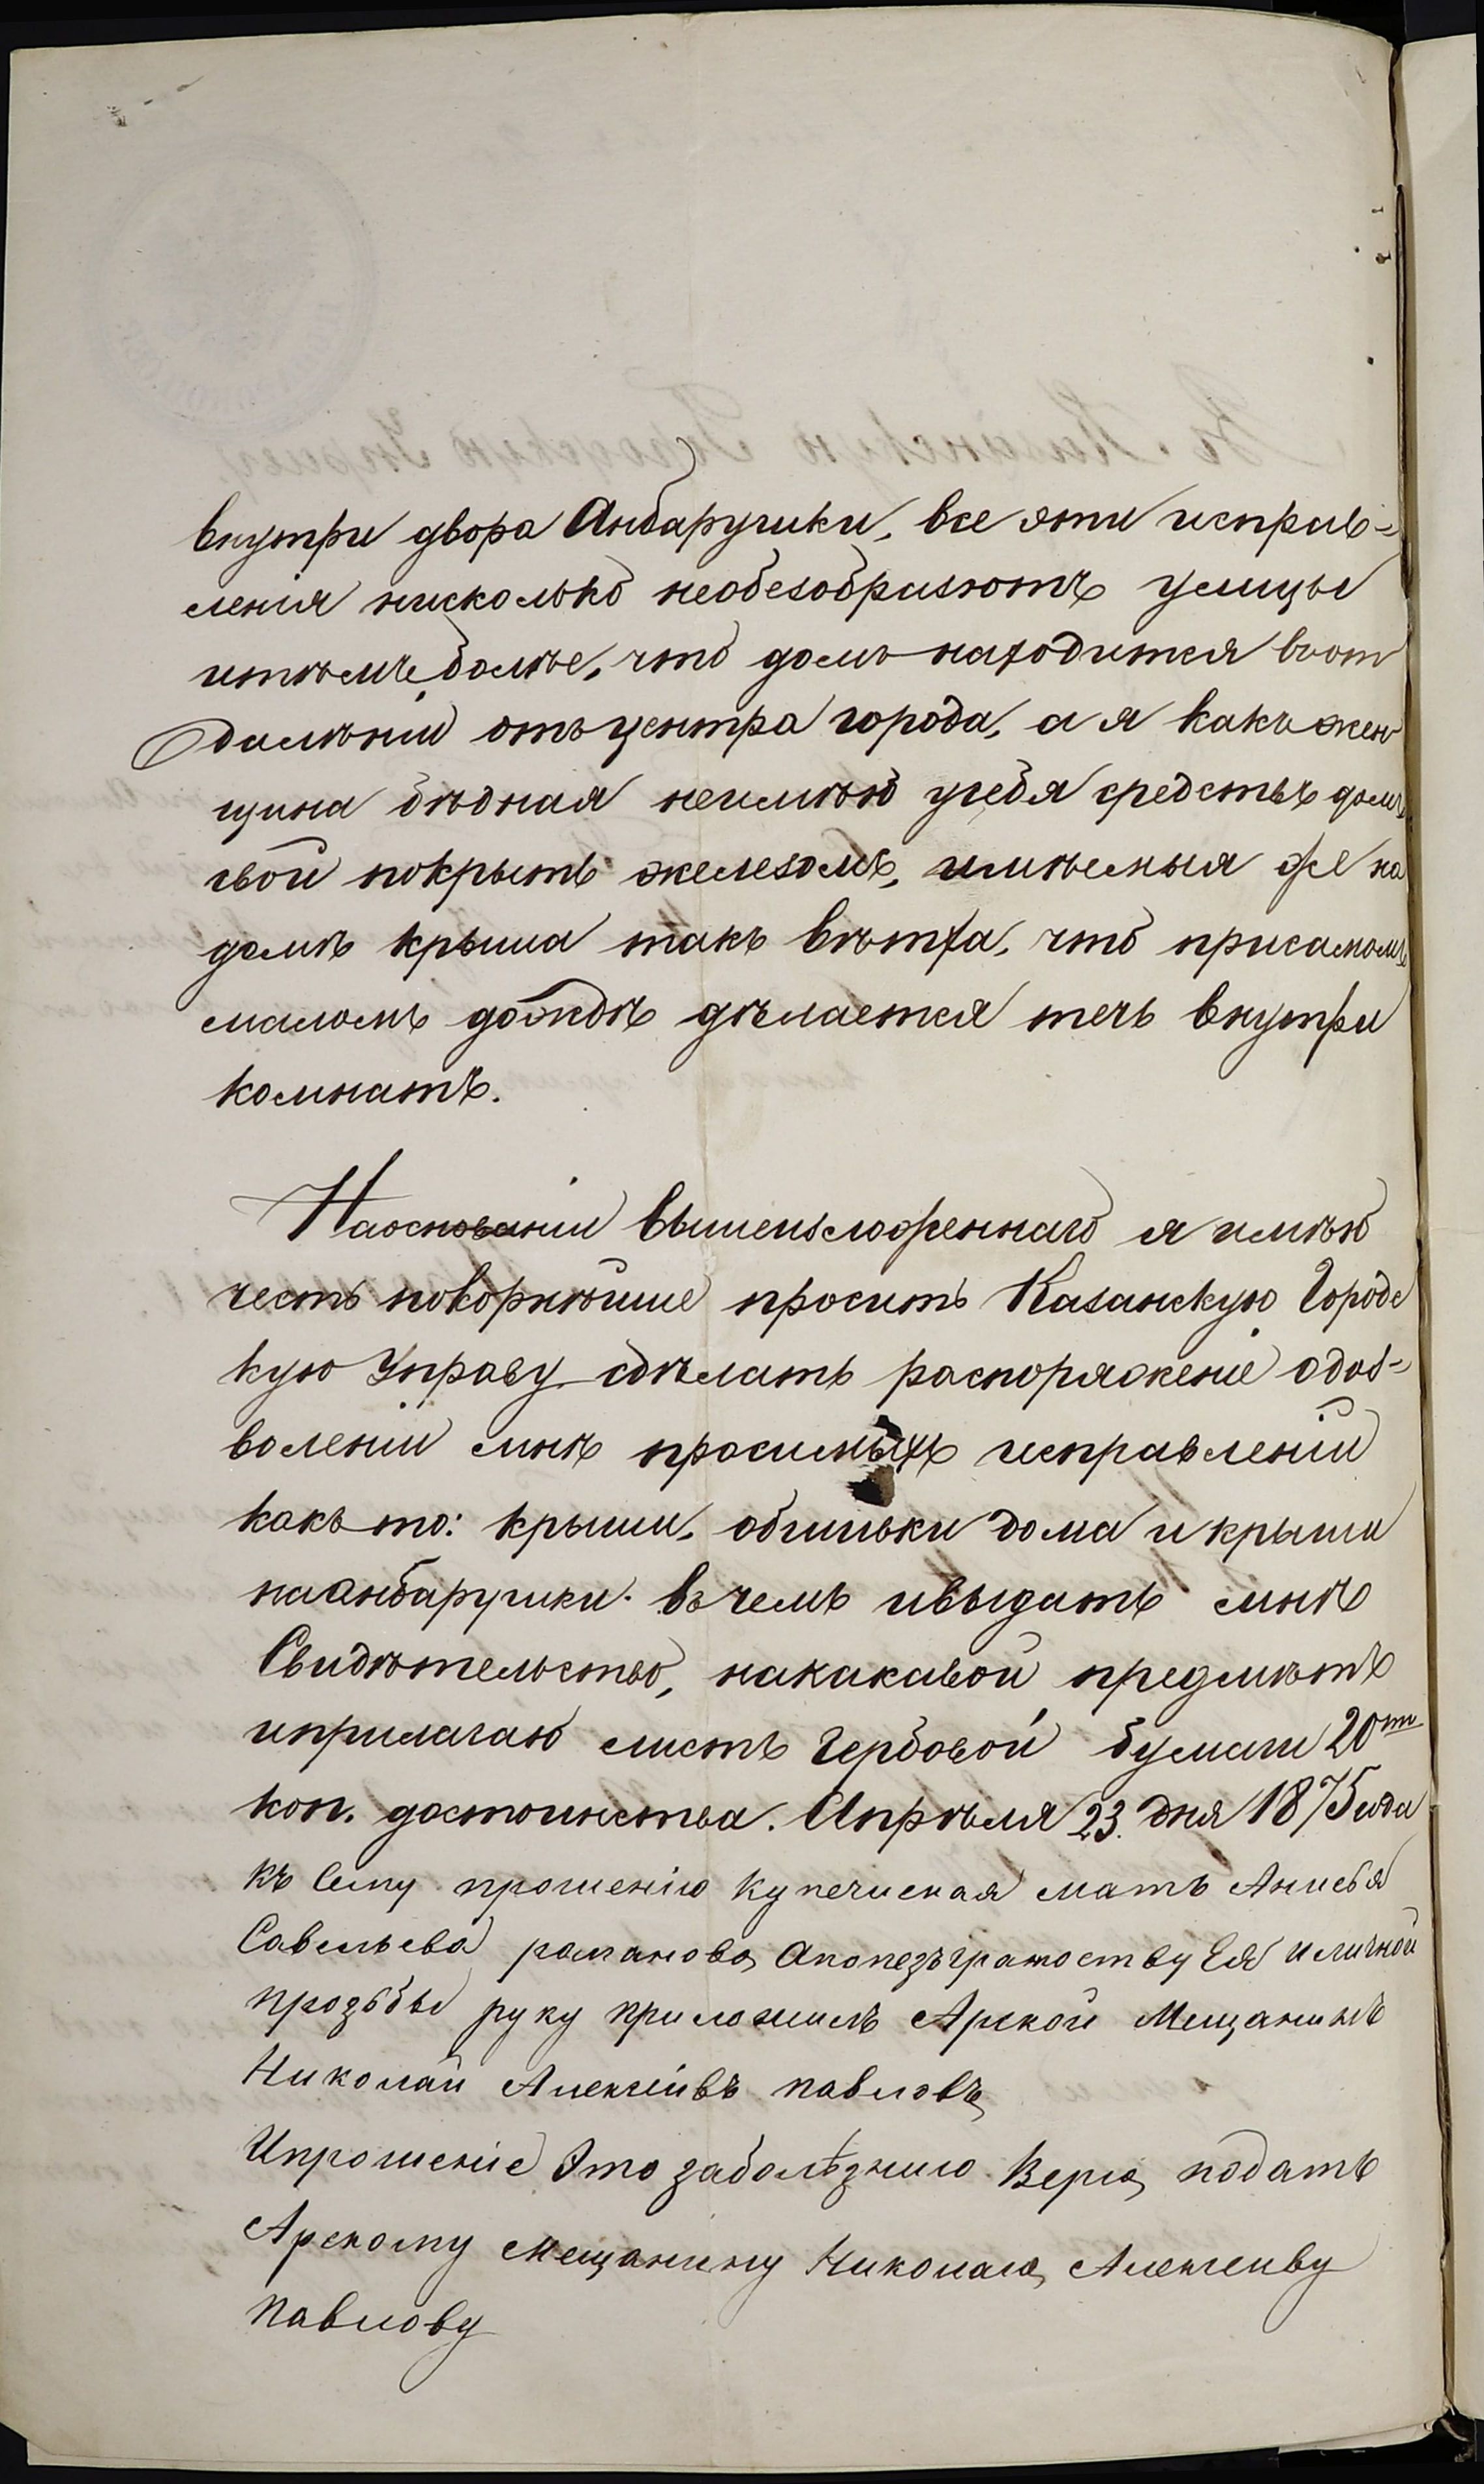 внутри двора Анбарушки, все эти исправ-
ленія нисколько необезобразютъ улицы
итѣмъ болѣе, что домъ находится вот
далѣніи отъ центра города, а я какъ жен
щина бѣдная неимѣю усебя средствъ домъ
свой покрыть железомъ, имѣемыя же на
домѣ крыша такъ вѣтха, что присамомъ
маломъ дождѣ дѣлается течь внутри
комнатъ.
Наоснованіи вышеизложеннаго я имѣю
честь покорнѣйше просить Казанскую Городс
кую Управу сдѣлать распоряженіе одоз-
воленіи мнѣ просимыхъ исправленій
какъ то: крыши, обшивки дома и крыши
наанбарушки. въ чемъ ивыдать мнѣ
Свидѣтельство, накакавой предмѣтъ
иприлагаю листъ Гербовой бумаги 20ти
коп. достоинства. Апрѣля 23. дня 1875 года
къ Сему прошенію Купеческая мать Анисья
Савельева романова, Апопезъграмоству Ея иличной
прозьбы руку приложилъ Арской Мещанинъ
Николай Алексѣивъ павловъ
Ипрошеніе Это заболѣзнию Верю подать
Арскому мещанину Николаю Алексеиву
павлову
В Казанскую Городскую Управу